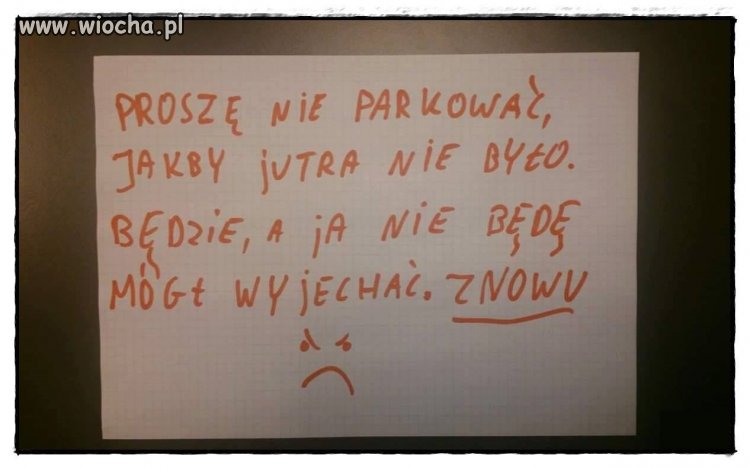 www.wiocha.pl
PROSZĘ NIE PARKOWAĆ,
JAKBY JUTRA NIE BYŁO.
BĘDZIE, A JA NIE BĘDĘ
MÓGŁ WYJECHAĆ. ZNOWU